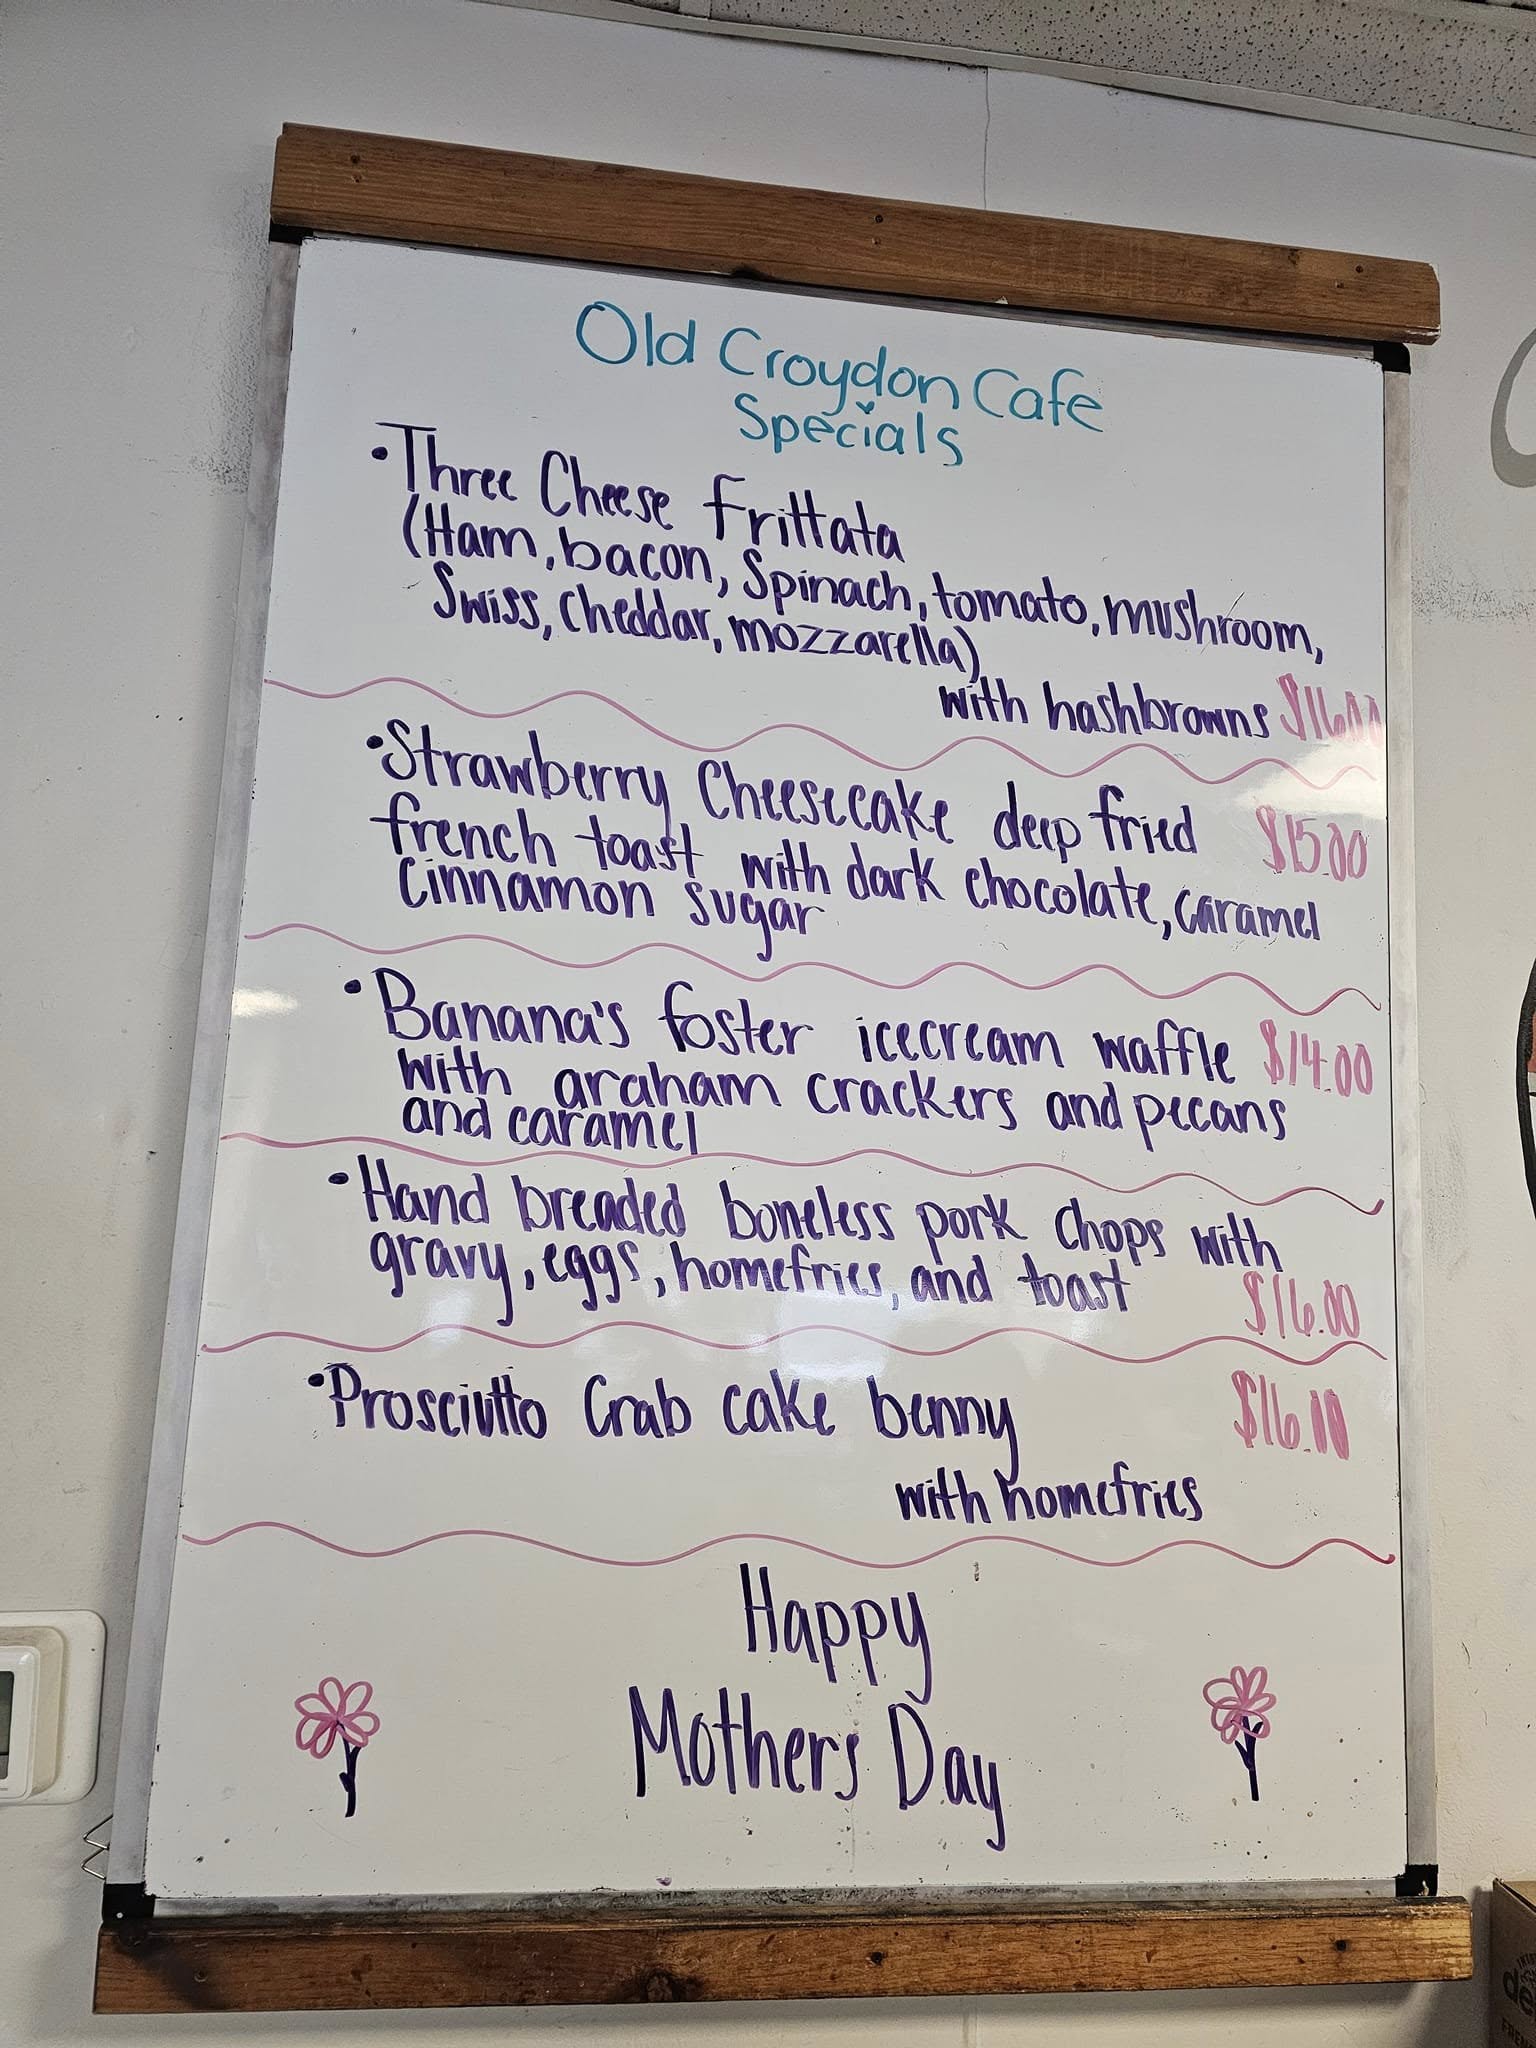 Old Croydon Cafe
Specials
• Three Cheese Frittata
(Ham, bacon, Spinach, tomato, mushroom,
Swiss, cheddar, mozzarella)
with hashbrowns $16.00
• Strawberry Cheesecake deep fried $15.00
french toast with dark chocolate, caramel
cinnamon sugar
• Banana's foster icecream waffle $14.00
with graham crackers and pecans
and caramel
• Hand breaded boneless pork chops with
gravy, eggs, homefries, and toast
$16.00
• Prosciutto Crab cake benny $16.00
with homefries
Happy
Mothers Day